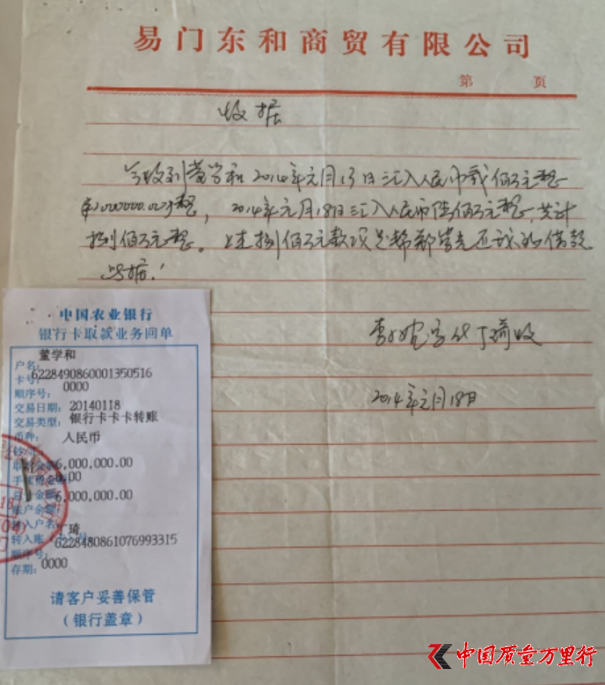 易门东和商贸有限公司
第 页
收据
今收到董学和2014年元月13日汇入人民币贰佰万元整
¥2000000.00元整，2014年元月18日汇入人民币陆佰万元整，共计
捌佰万元整。上述捌佰万元款项是帮
还
的借款
此据！
代丁琦收
2014年元月18日
中国农业银行
银行卡取款业务回单
户名: 董学和
卡号: 6228490860001350516
顺序号: 0000
交易日期: 20140118
交易类型: 银行卡卡卡转账
币种: 人民币
6,000,000.00
0.00
6,000,000.00
账户余额:
转入户名: 丁琦
转入账 6228480861076993315
顺序号: 0000
存期:
请客户妥善保管
(银行盖章)
中国质量万里行